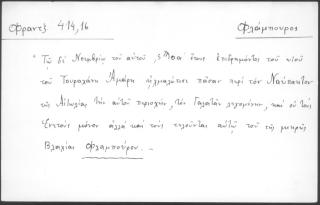 Φραντζ. 414,16
Φλάμπουρος
" Τῷ δὲ Νοεμβρίῳ τοῦ αὐτοῦ ἔτους ἐπιδημοῦντος τοῦ υἱοῦ
τοῦ Τουραχάνη Ἀμάρη ᾐχμαλώτισε πᾶσαν περὶ τὸν Ναύπακτον
τῆς Αἰτωλίας τὴν αὐτοῦ περιοχήν, τὸν Γαλατᾶν λεγομένην, καὶ οὐ τοὺς
Ἐνετοὺς μόνον ἀλλὰ καὶ τοὺς τελοῦντας αὐτῷ τοῦ τῆς μικρῆς
Βλαχίας Φλαμπούρου. —